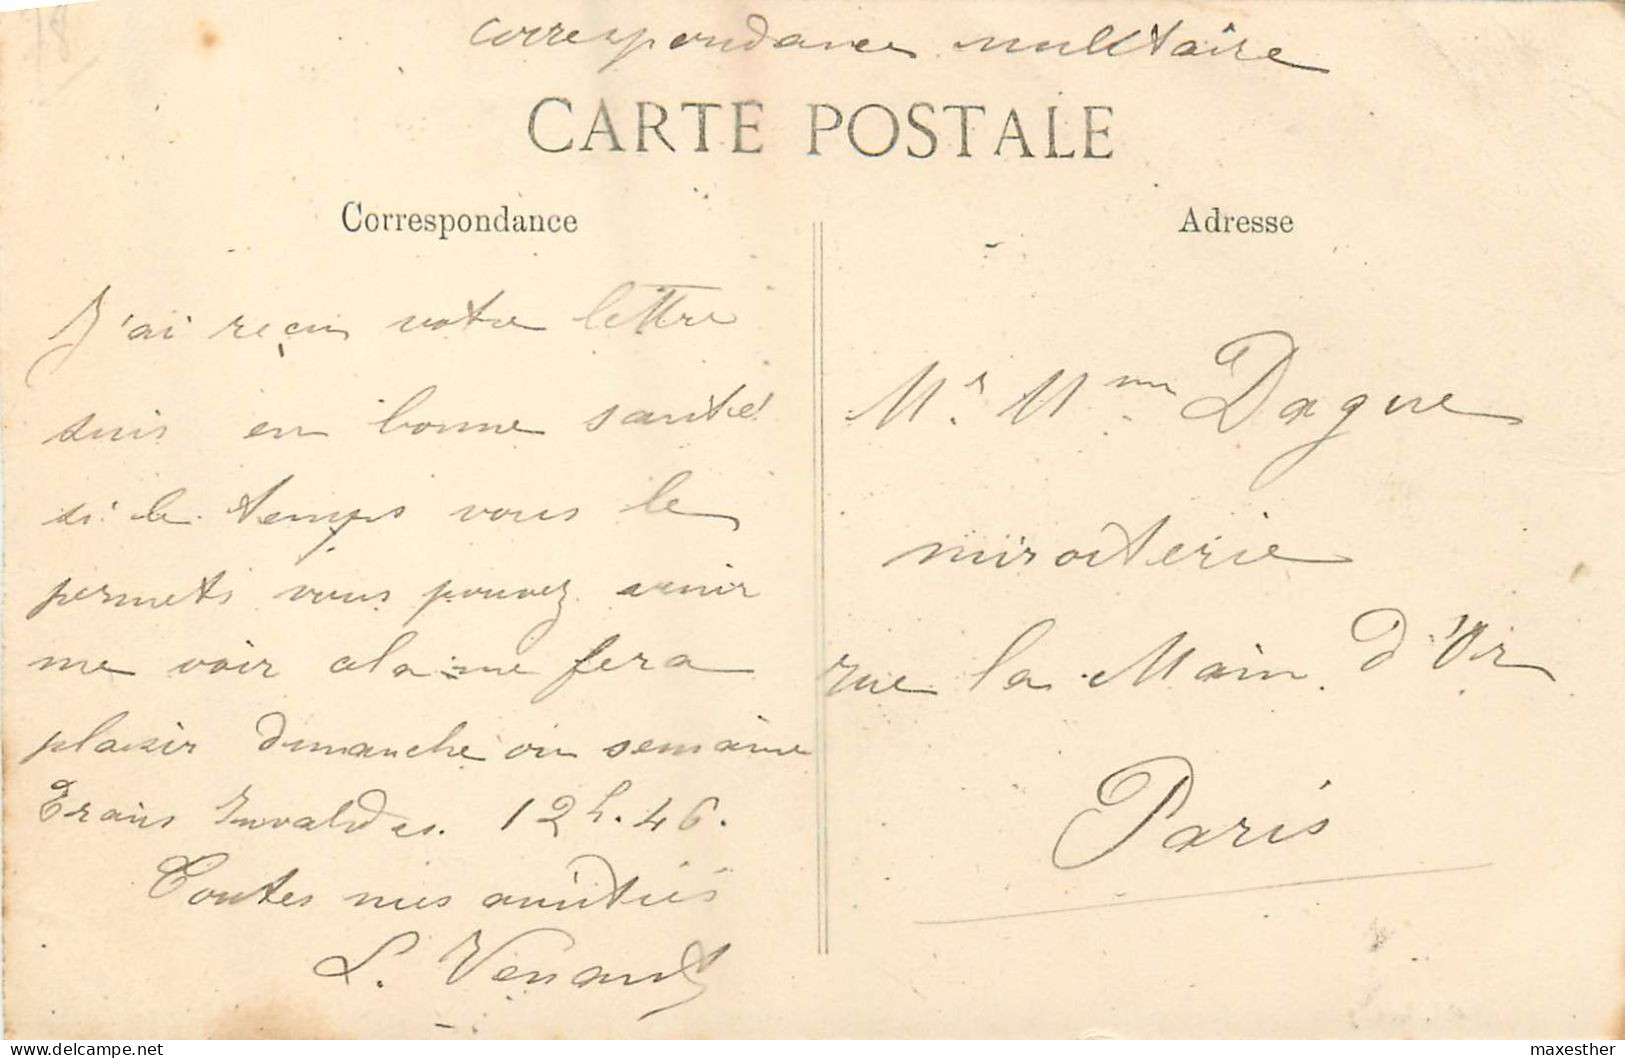 78
correspondance militaire
CARTE POSTALE
Correspondance
Adresse
J'ai reçu votre lettre
suis en bonne santé
si le temps vous le
permets vous pouvez venir
me voir cela me fera
plaisir dimanche ou semaine
Trains Invalides. 12h.46.
Toutes mes amitiés
L. Venault
Mr. Mme Dague
miroiterie
rue la Main d'Or
Paris
Delcampe.net
maxesther